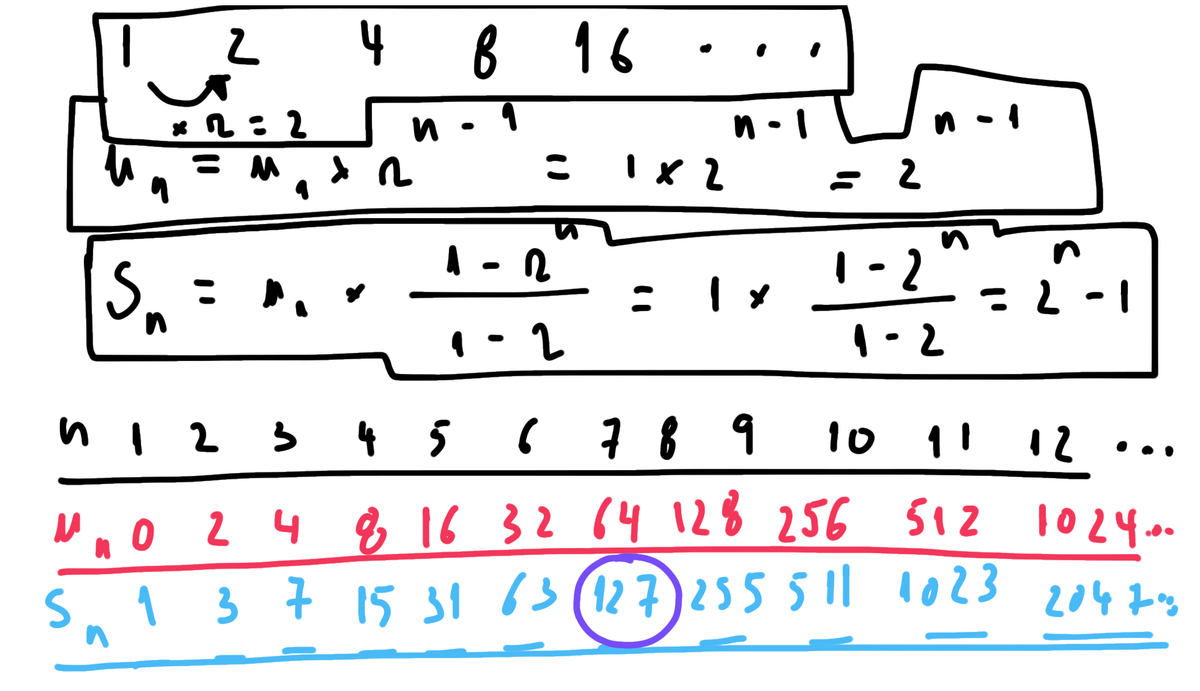 1 2 4 8 16 . . .
× r = 2
u_n = u_1 × r^{n-1} = 1 × 2^{n-1} = 2^{n-1}
S_n = u_1 × \frac{1 - r^n}{1 - 2} = 1 × \frac{1 - 2^n}{1 - 2} = 2^n - 1
n 1 2 3 4 5 6 7 8 9 10 11 12 ...
u_n 0 2 4 8 16 32 64 128 256 512 1024...
S_n 1 3 7 15 31 63 127 255 511 1023 2047...